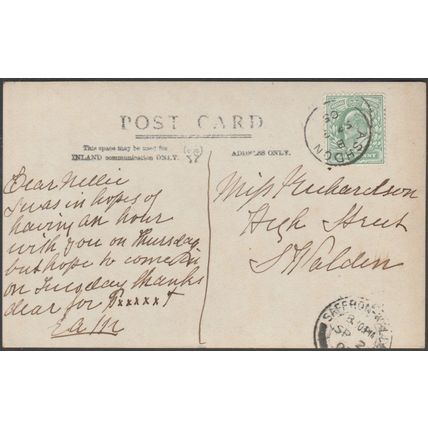 POST CARD
This space may be used for
INLAND communication ONLY.
ADDRESS ONLY.
Dear Nellie
I was in hopes of
having an hour
with you on Thursday
but hope to come in
on Tuesday thanks
dear for Pxxxxx T
E.A.M
Miss Richardson
High Street
S Walden
ASHDON
SAFFRON-WALDEN
SP 2